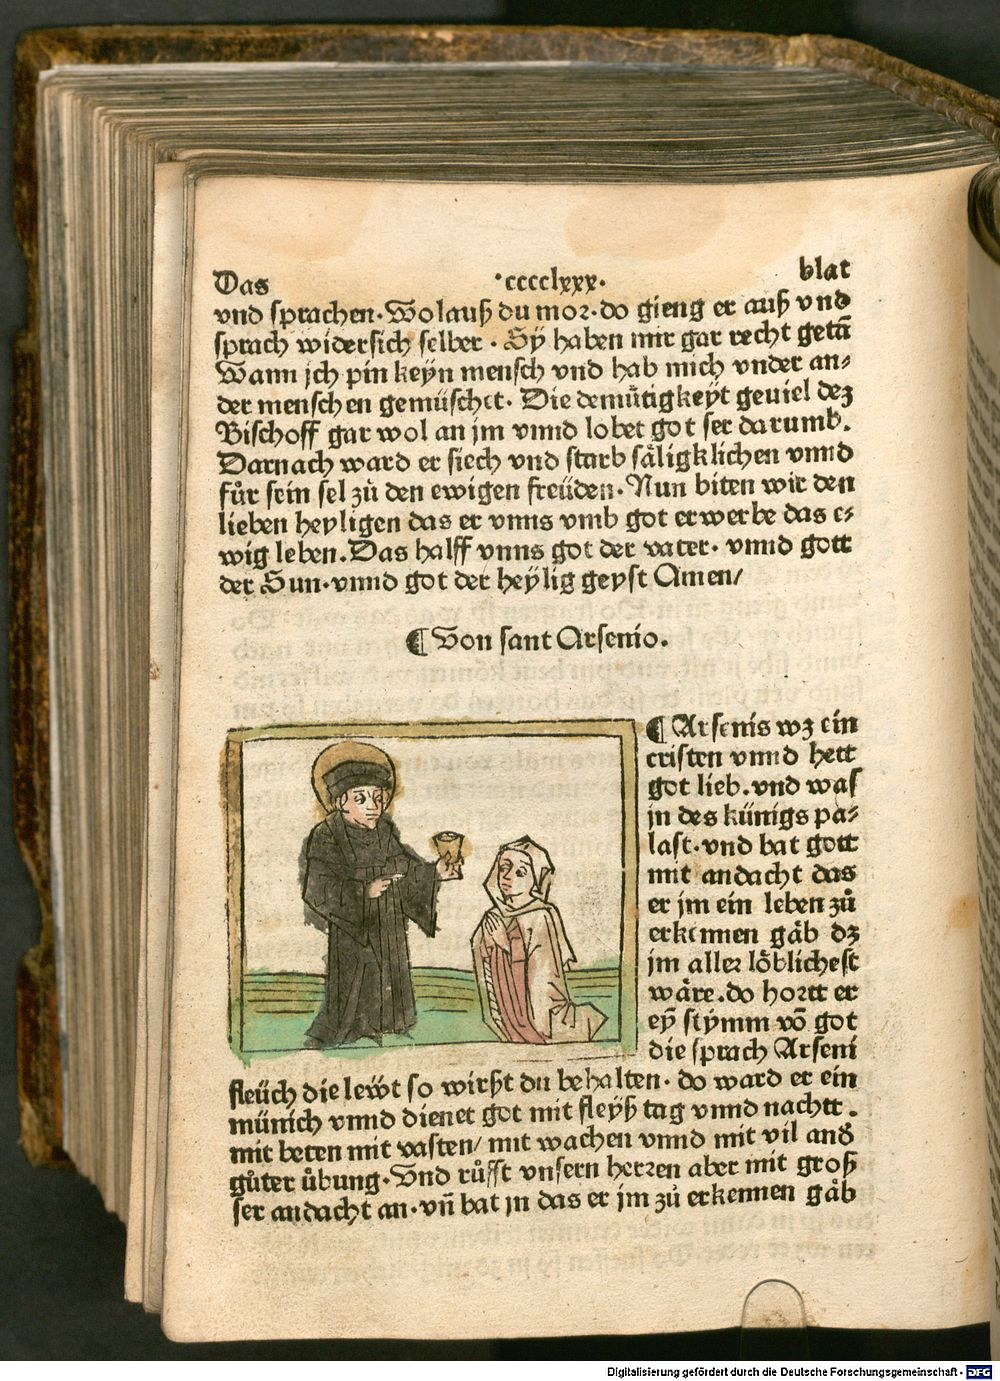 Das ·cccclxxx· blat
vnd sprachen. Wolauß du mor. do gieng er auß vnd
sprach widersich selber. Sÿ haben mir gar recht getā
Wann jch pin keÿn mensch vnd hab mich vnder an⸗
der menschen gemüschet. Die demütigkeÿt geuiel dez
Bischoff gar wol an jm vnnd lobet got ser darumb.
Darnach ward er siech vnd starb säligklichen vnnd
fůr sein sel zů den ewigen freüden. Nun biten wir den
lieben heyligen das er vnns vmb got erwerbe das e⸗
wig leben. Das halff vnns got der vater. vnnd gott
der Sun. vnnd got der heÿlig geyst Amen/
¶ Von sant Arsenio.
¶ Arsenis wz ein
cristen vnnd hett
got lieb. vnd was
jn des künigs pa⸗
last. vnd bat gott
mit andacht das
er jm ein leben zů
erkennen gäb dz
jm aller löblichest
wäre. do hortt er
eÿ stÿmm vō got
die sprach Arseni
fleüch die lewt so wirßt du behalten. do ward er ein
münich vnnd dienet got mit fleÿß tag vnnd nachtt.
mit beten mit vasten/ mit wachen vnnd mit vil and
gůter übung. Vnd růfft vnsern herren aber mit groß
ser andacht an. vn̄ bat jn das er jm zů erkennen gäb
Digitalisierung gefördert durch die Deutsche Forschungsgemeinschaft - DFG